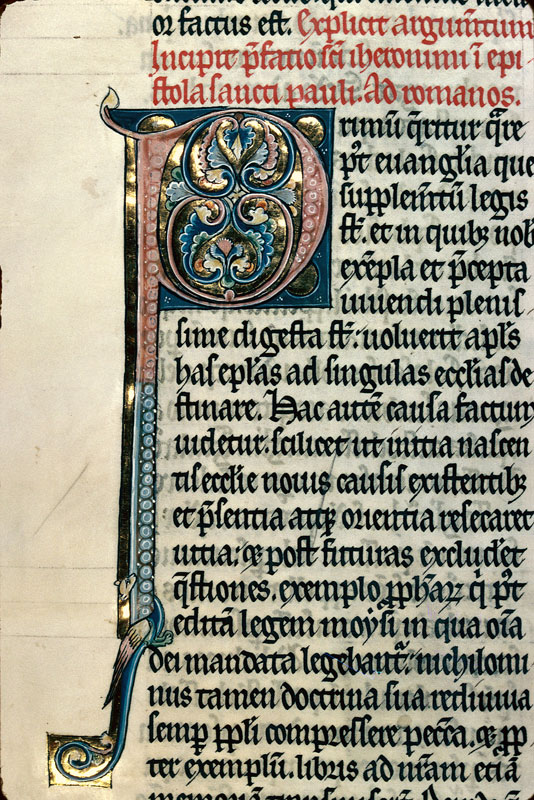 or factus est. Explicit argum̅tum
Incipit p̅fatio sc̅i iheronimi i̅ epi
stola sancti pauli. Ad romanos.
Primu̅ q̅ritur q̅re
p̅t euang̅lia que
supplem̅tu̅ legis
st̅. et in quibꝫ nob̅
exe̅pla et p̅cepta
uiuendi plenis
sime digesta st̅: uoluerit ap̅ls
has ep̅las ad singulas eccl̅ias de
stinare. Hac aute̅ causa factum
uidetur. scilicet ut initia nascen
tis eccl̅ie nouis causis existentibꝫ
et p̅sentia atqꝫ orientia resecaret
uitia: et post futuras excluder̅et
q̅stiones. exemplo ꝓph̅arꝫ q̅ p̅t
edita̅ legem moysi in qua oi̅a
dei mandata legebant̅: nichilomi
nus tamen doctrina sua rediuiua
semp̅ pp̅li compressere pecc̅a. et ꝓp
ter exemplu̅. libris ad n̅ram etia̅